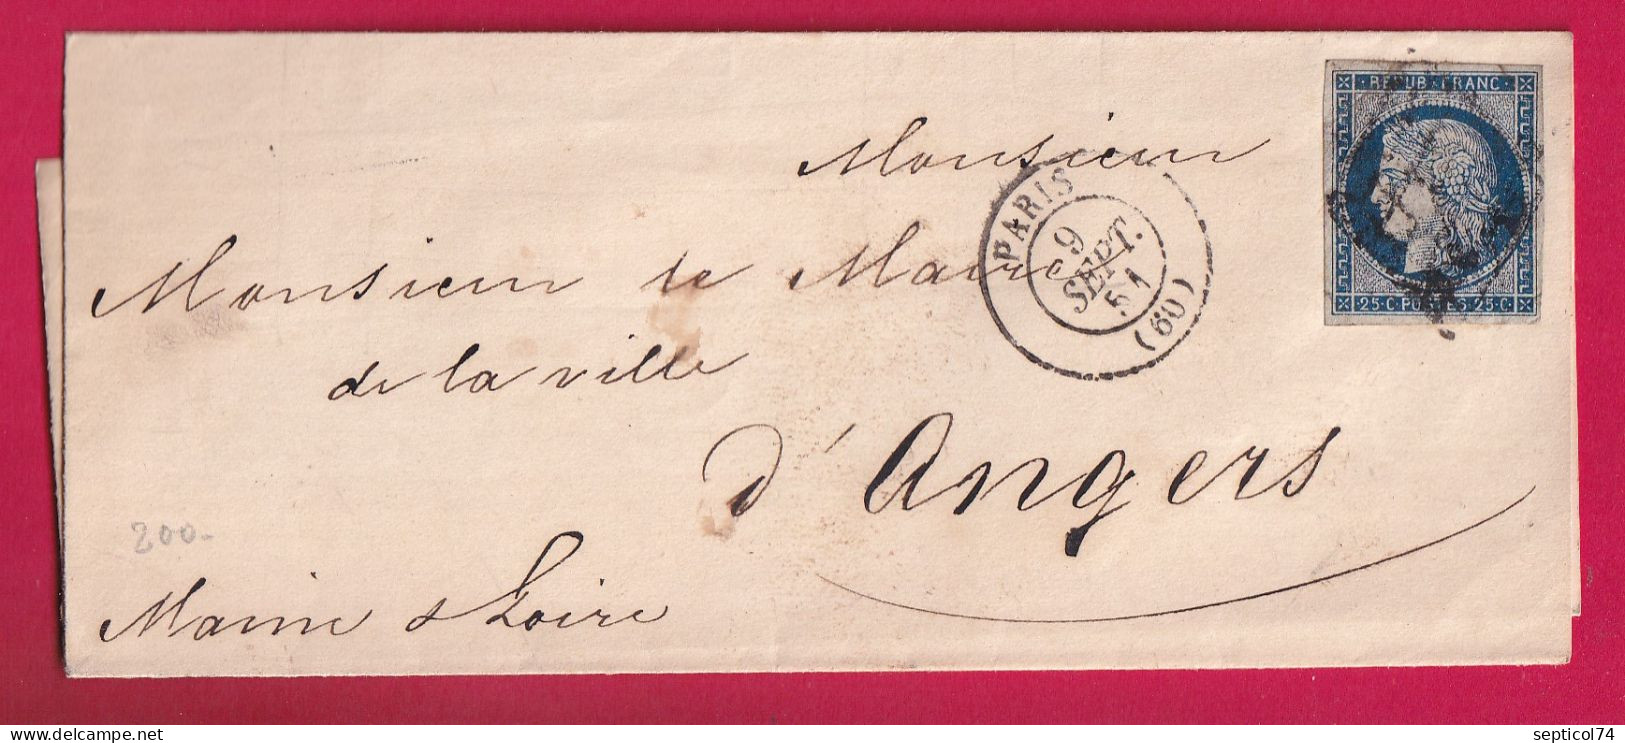 REPUB·FRANC·
25·C·POSTES·25·C·
Monsieur
PARIS
9
SEPT.
51
(60)
Monsieur le Maire
de la ville
d'Angers
200-
Maine & Loire
www.delcampe.net
septicol74